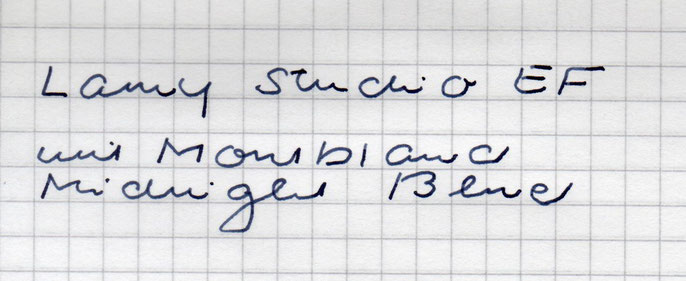 Lamy Studio EF
mit Montblanc
Midnight Blue